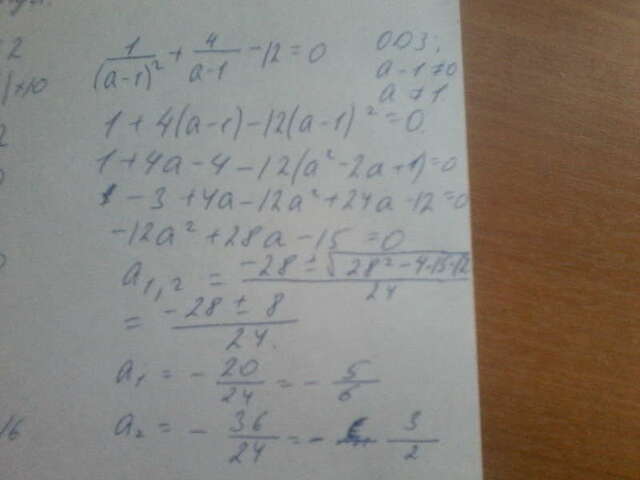 1/(a-1)² + 4/(a-1) - 12 = 0
ОДЗ:
a-1≠0
a≠1
1 + 4(a-1) - 12(a-1)² = 0
1 + 4a - 4 - 12(a² - 2a + 1) = 0
- 3 + 4a - 12a² + 24a - 12 = 0
-12a² + 28a - 15 = 0
a₁,₂ = (-28 ± √(28² - 4·15·12))/24
= (-28 ± 8)/24.
a₁ = - 20/24 = - 5/6
a₂ = - 36/24 = - 3/2